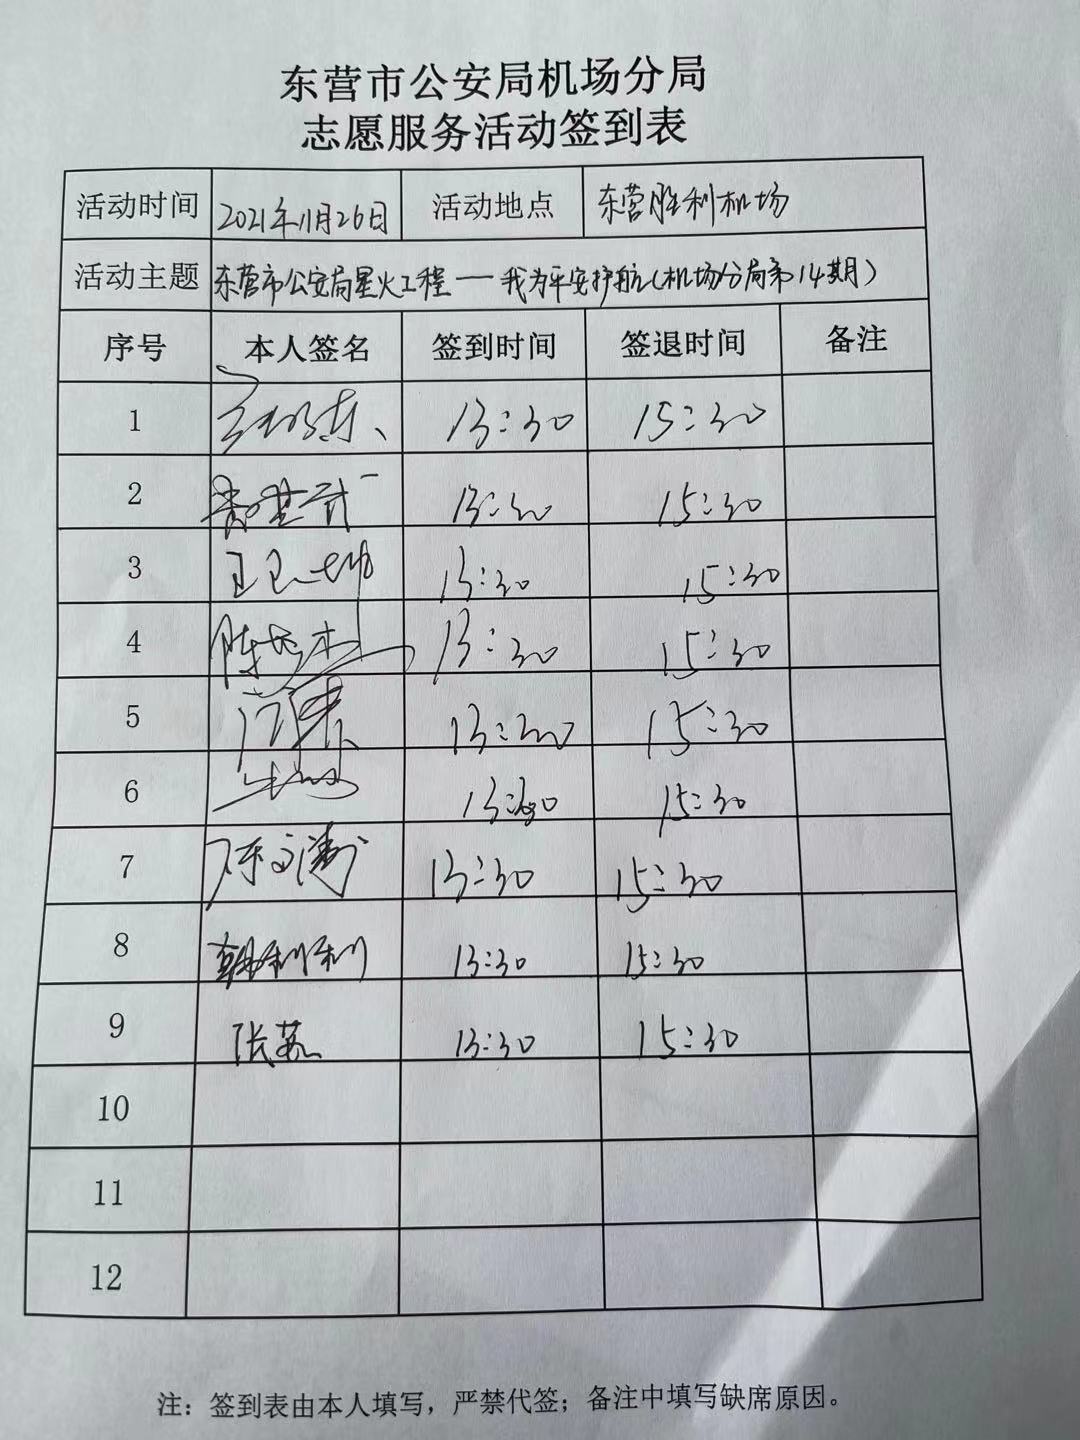 东营市公安局机场分局
志愿服务活动签到表
活动时间 2021年11月26日 活动地点 东营胜利机场
活动主题 东营市公安局星火工程——我为平安护航(机场分局第14期)
序号 本人签名 签到时间 签退时间 备注
1 13:30 15:30
2 13:30 15:30
3 13:30 15:30
4 13:30 15:30
5 13:30 15:30
6 13:30 15:30
7 陈文涛 13:30 15:30
8 韩利利 13:30 15:30
9 张荔 13:30 15:30
10
11
12
注：签到表由本人填写，严禁代签；备注中填写缺席原因。